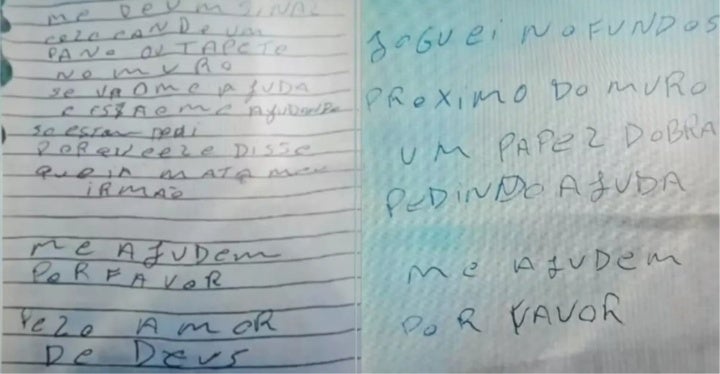 me DEU M SINAL
COLOCANDE UM
PANO OU TAPETO
NO MURO
SE VÃO ME AJUDA
E ISSÃE ME AJUDANDO
SO ESTOU PEDI
PORQUE ELE DISSE
QUE IA MATA MEU
IRMAO
ME AJUDEM
POR FAVOR
PELO AMOR
DE DEUS
JOGUEI NO FUNDOS
PROXIMO DO MURO
UM PAPEL DOBRA
PEDINDO AJUDA
ME AJUDEM
POR FAVOR